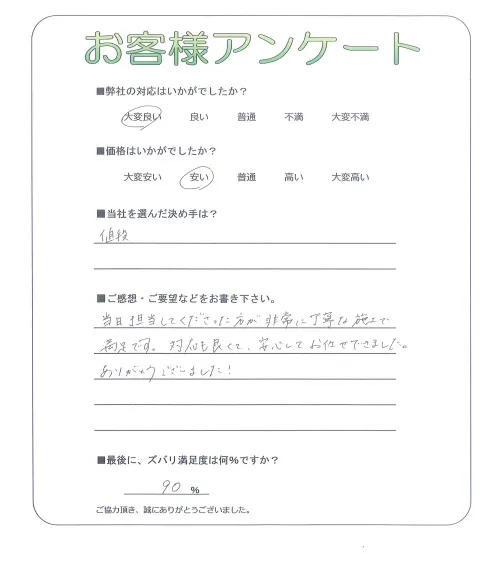 お客様アンケート
■弊社の対応はいかがでしたか?
大変良い 良い 普通 不満 大変不満
■価格はいかがでしたか?
大変安い 安い 普通 高い 大変高い
■当社を選んだ決め手は?
値段
■ご感想・ご要望などをお書き下さい。
当日担当してくださった方が非常に丁寧な施工で
満足です。対応も良くて、安心してお任せできました。
ありがとうございました!
■最後に、ズバリ満足度は何%ですか?
90 %
ご協力頂き、誠にありがとうございました。